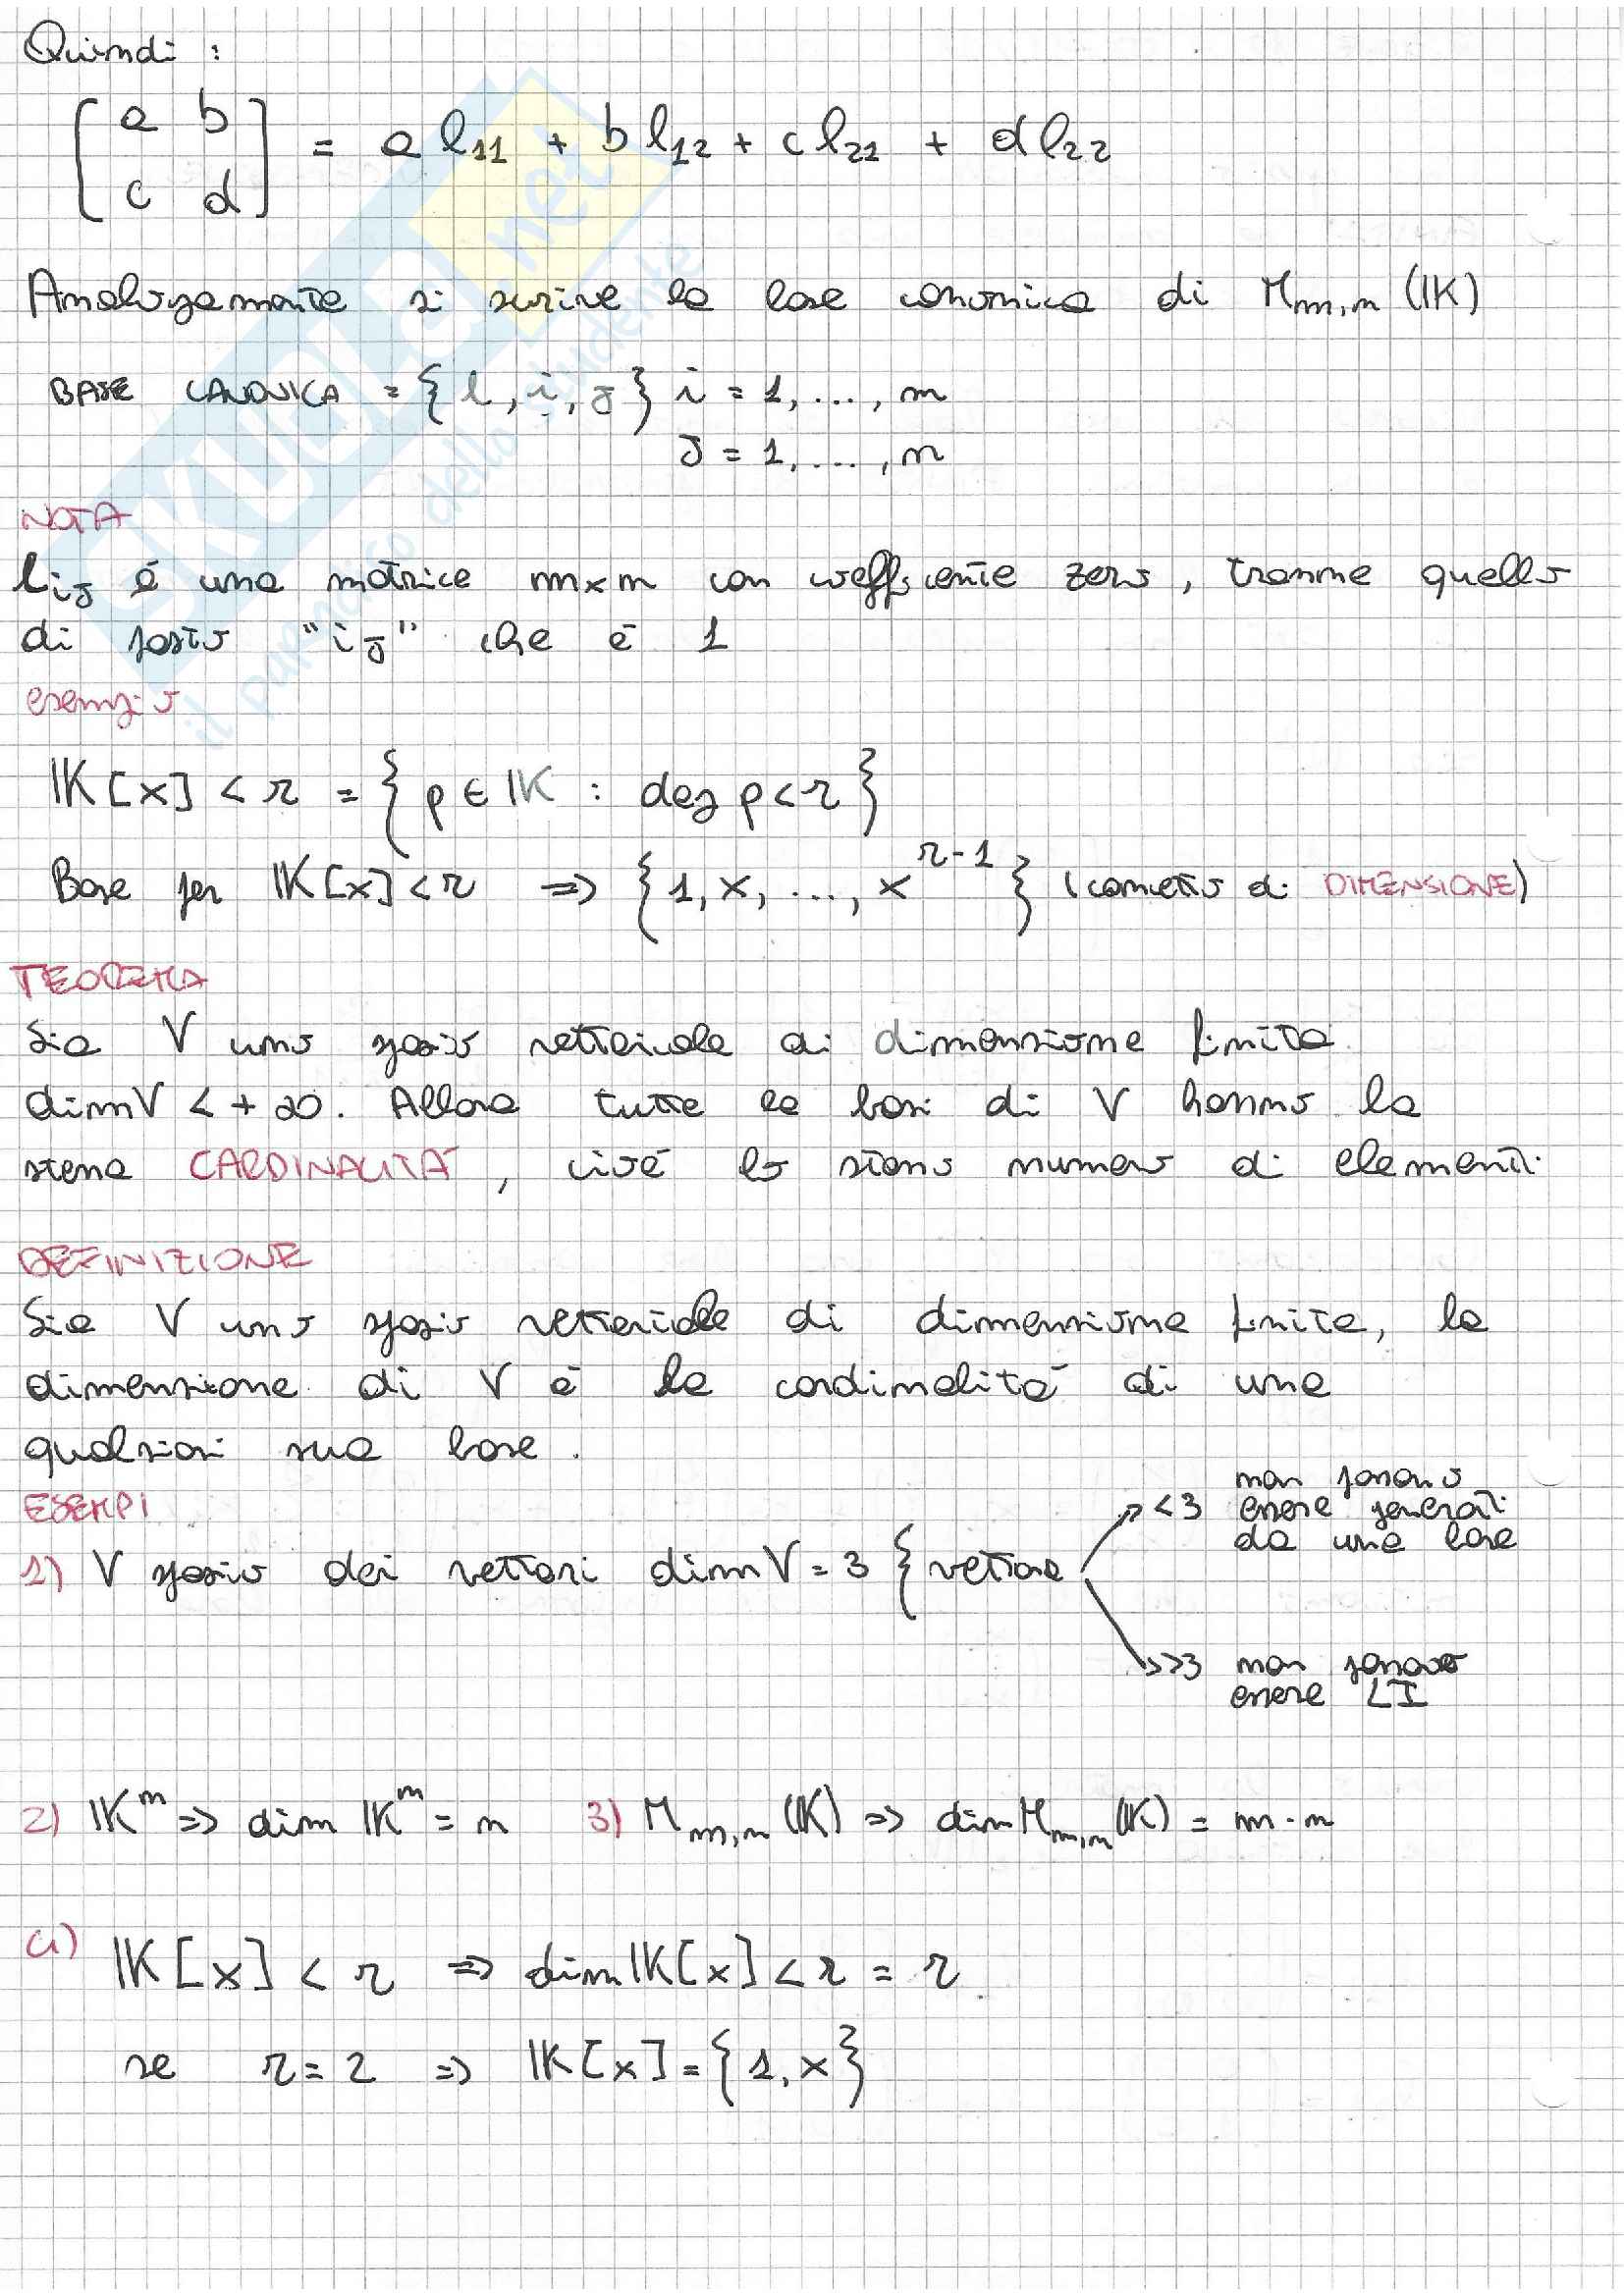 Quindi :
[a b
c d] = a e₁₁ + b e₁₂ + c e₂₁ + d e₂₂
Analogamente si scrive la base canonica di Mm,n (IK)
BASE CANONICA = {e, i, j} i = 1, ..., m
J = 1, ..., n
NOTA
eij é una matrice mxn con coefficiente zero, tranne quello
di posto "ij" che é 1
esempio
IK[x] < r = { p ∈ IK : deg p < r }
Base per IK[x] < r => {1, x, ..., x^r-1} (concetto di DIMENSIONE)
TEOREMA
Sia V uno spazio vettoriale di dimensione finita
dimV < +∞. Allora tutte le basi di V hanno la
stessa CARDINALITÁ, cioé lo stesso numero di elementi
DEFINIZIONE
Sia V uno spazio vettoriale di dimensione finita, la
dimensione di V é la cardinalitá di una
qualsiasi sua base.
ESEMPI
1) V spazio dei vettori dimV = 3 { vettore
<3 non possono
essere generati
da una base
>3 non possono
essere LI
2) IK^n => dim IK^n = n 3) Mm,n (IK) => dim Mm,n (IK) = m · n
4) IK[x] < r => dim IK[x] < r = r
se r = 2 => IK[x] = {1, x}
SKUOLA.net
il paradiso dello studente